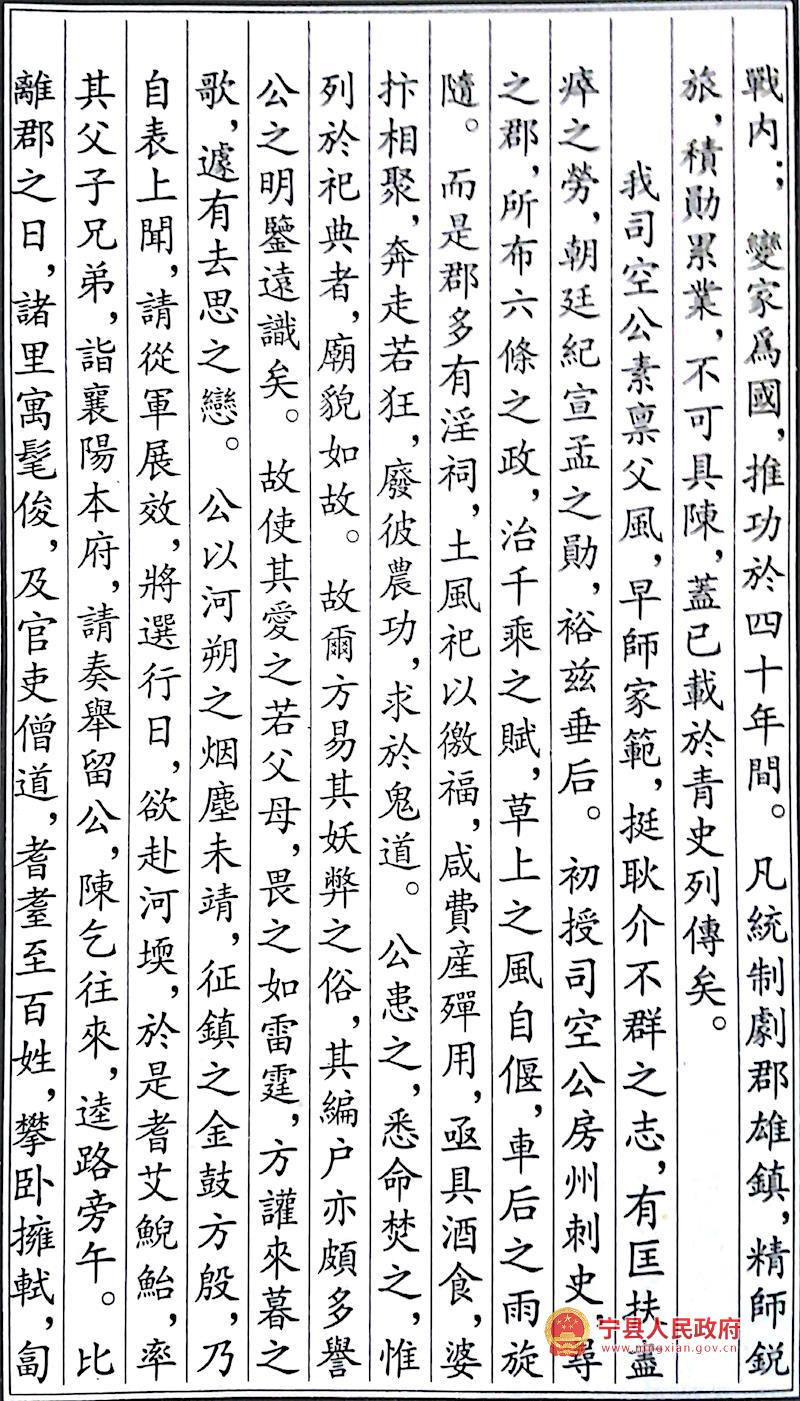 戰内；變家爲國，推功於四十年間。凡統制劇郡雄鎮，精師鋭
旅，積勛累業，不可具陳，蓋已載於青史列傳矣。
我司空公素禀父風，早師家範，挺耿介不群之志，有匡扶盡
瘁之勞，朝廷紀宣孟之勛，裕兹垂后。初授司空公房州刺史，尋
之郡，所布六條之政，治千乘之賦，草上之風自偃，車后之雨旋
隨。而是郡多有淫祠，土風祀以徼福，咸費産殫用，亟具酒食，婆
抃相聚，奔走若狂，廢彼農功，求於鬼道。公患之，悉命焚之，惟
列於祀典者，廟貌如故。故爾方易其妖弊之俗，其編户亦頗多譽
公之明鑒遠識矣。故使其愛之若父母，畏之如雷霆，方讙來暮之
歌，遽有去思之戀。公以河朔之烟塵未靖，征鎮之金鼓方殷，乃
自表上聞，請從軍展效，將選行日，欲赴河堧，於是耆艾鯢鮐，率
其父子兄弟，詣襄陽本府，請奏舉留公，陳乞往來，逵路旁午。比
離郡之日，諸里寓髦俊，及官吏僧道，耆耋至百姓，攀卧擁軾，匐
宁县人民政府
www.ningxian.gov.cn